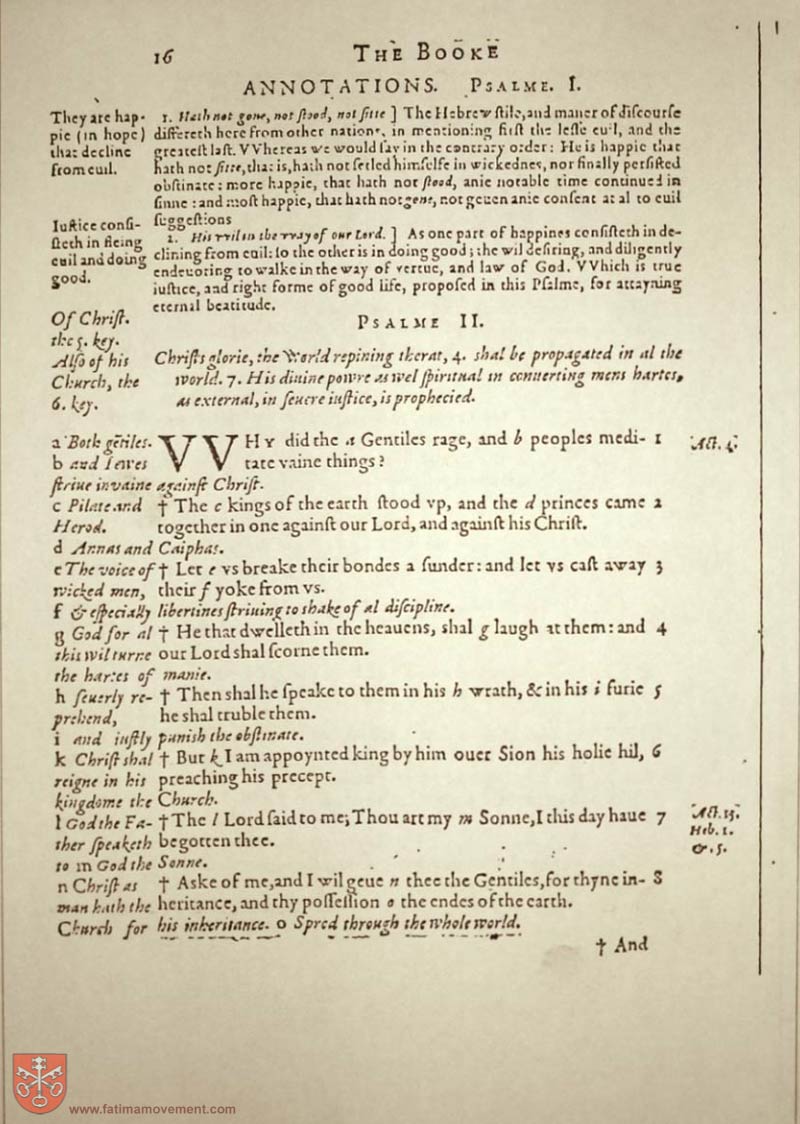 16 THE BOOKE
ANNOTATIONS. PSALME. I.
They are hap-
pie (in hope)
that decline
from euil.
1. Hath not gone, not ſtood, not ſitte ] The Hebrew ſtile, and maner of diſcourſe
differeth here from other nations, in mentioning firſt the leſſe euil, and the
greateſt laſt. VVhereas we would ſay in the contrary order: He is happie that
hath not ſitte, that is, hath not ſetled himſelfe in wickednes, nor finally perſiſted
obſtinate: more happie, that hath not ſtood, anie notable time continued in
ſinne: and moſt happie, that hath not gone, not geuen anie conſent at al to euil
ſuggeſtions
Iuſtice conſi-
ſteth in fleing
euil and doing
good.
2. His wil in the way of our Lord. ] As one part of happines conſiſteth in de-
clining from euil: ſo the other is in doing good; the wil deſiring, and diligently
endeuoring to walke in the way of vertue, and law of God. VVhich is true
iuſtice, and right forme of good life, propoſed in this Pſalme, for attayning
eternal beatitude.
PSALME II.
Of Chriſt.
the 5. key.
Alſo of his
Church, the
6. key.
Chriſts glorie, the World repining therat, 4. shal be propagated in al the
world. 7. His diuine powre as wel ſpiritual in conuerting mens hartes,
as external, in ſeuere iuſtice, is prophecied.
a Both gētiles.
b and Iewes
ſtriue in vaine againſt Chriſt.
VVHY did the a Gentiles rage, and b peoples medi- 1
tate vaine things?
Act. 4.
c Pilate and
Herod.
† The c kings of the earth ſtood vp, and the d princes came 2
together in one againſt our Lord, and againſt his Chriſt.
d Annas and Caiphas.
e The voice of
wicked men,
† Let e vs breake their bondes a ſunder: and let vs caſt away 3
their f yoke from vs.
f & eſpecially libertines ſtriuing to shake of al diſcipline.
g God for al
this wil turne
† He that dwelleth in the heauens, shal g laugh at them: and 4
our Lord shal ſcorne them.
the hartes of manie.
h ſeuerly re-
prehend,
† Then shal he ſpeake to them in his h wrath, & in his i furie 5
he shal truble them.
i and iuſtly punish the obſtinate.
k Chriſt shal
reigne in his
† But k I am appoynted king by him ouer Sion his holie hil, 6
preaching his precept.
kingdome the Church.
l God the Fa-
ther ſpeaketh
† The l Lord ſaid to me; Thou art my m Sonne, I this day haue 7
begotten thee.
Act. 13.
Heb. 1.
&. 5.
to m God the Sonne.
n Chriſt as
man hath the
† Aske of me, and I wil geue n thee the Gentiles, for thyne in- 8
heritance, and thy poſſeſſion o the endes of the earth.
Church for his inheritance. o Spred through the whole world.
† And
www.fatimamovement.com